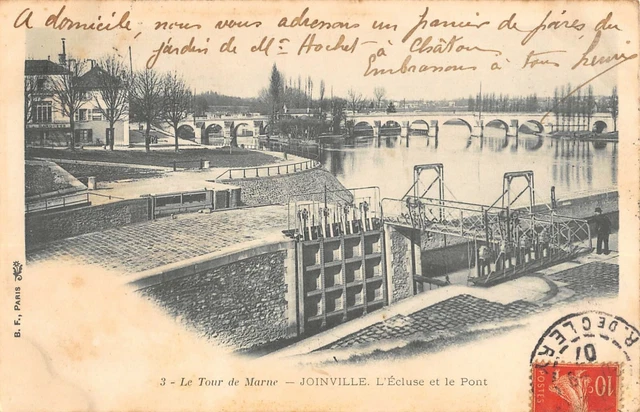 A domicile, nous vous adressons un panier de poires du
jardin de Mr Hochet à Châtou
Embrassons à tous
B. F., PARIS
3 - Le Tour de Marne — JOINVILLE. L'Écluse et le Pont
R. DE CLER
07
POSTES
10